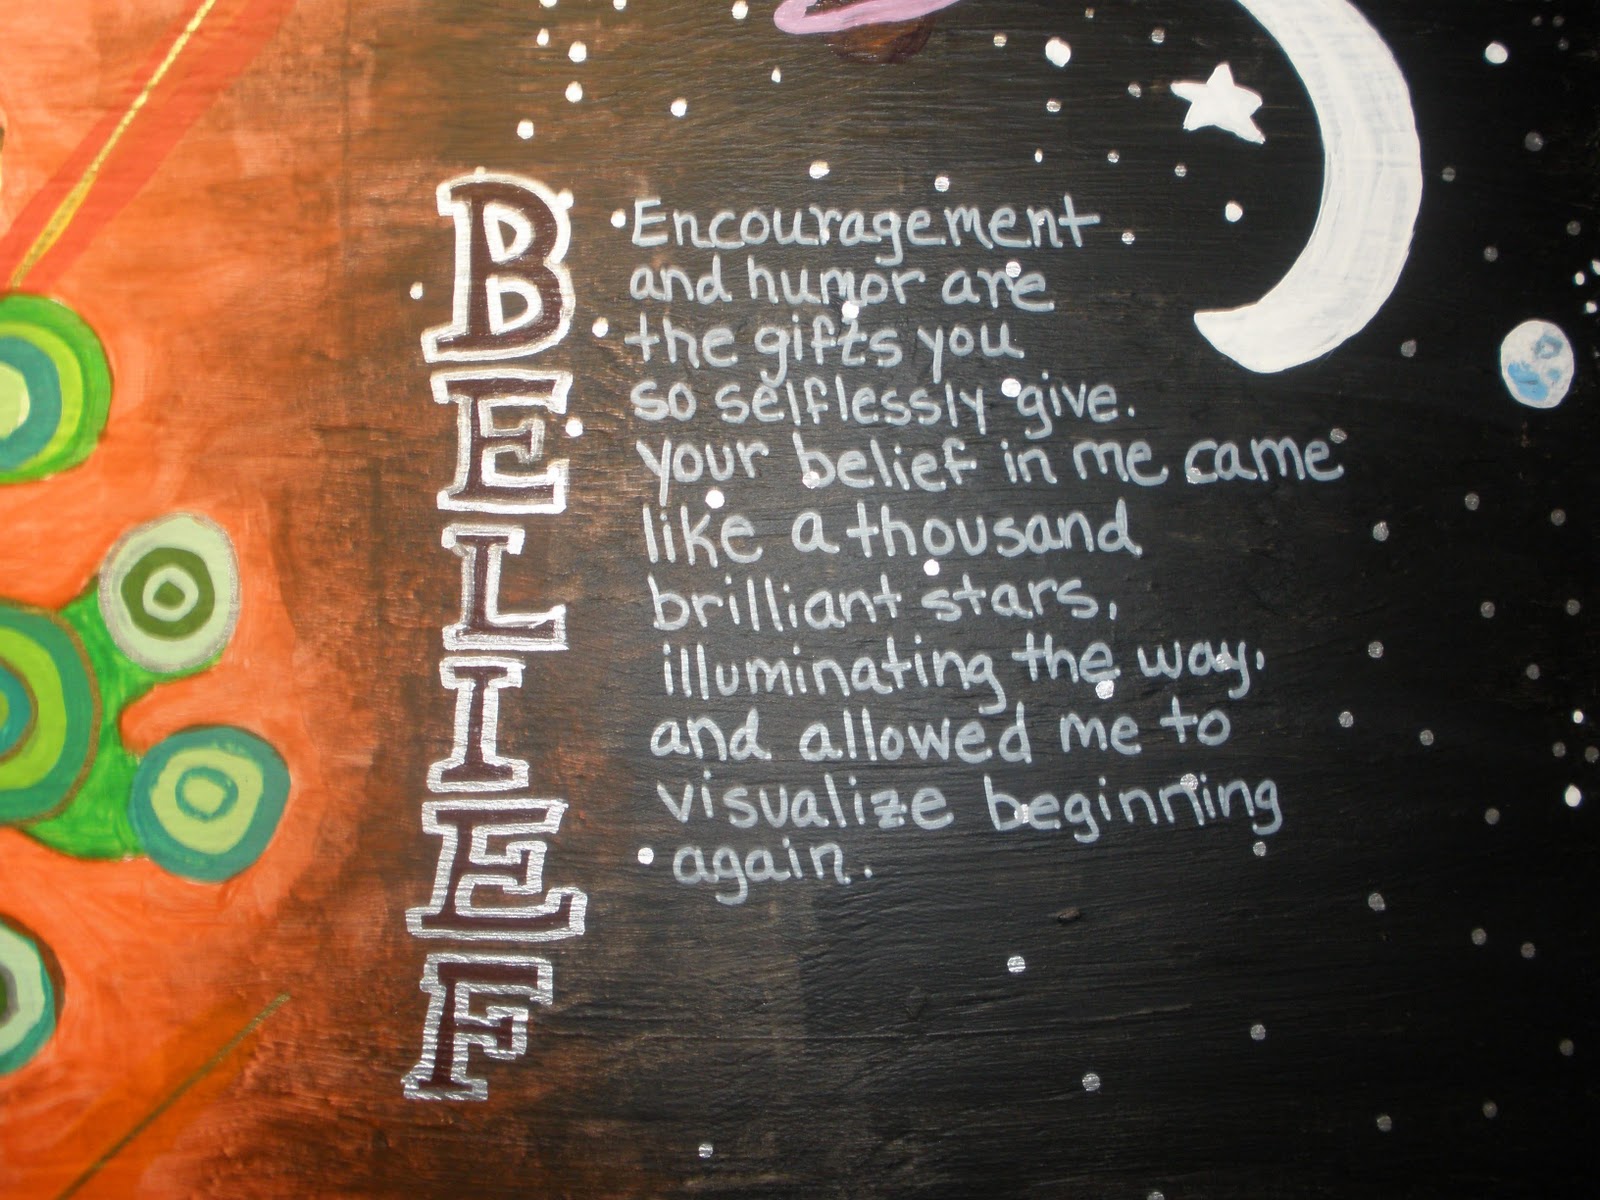 BELIEF
Encouragement
and humor are
the gifts you
so selflessly give.
your belief in me came
like a thousand
brilliant stars,
illuminating the way,
and allowed me to
visualize beginning
again.